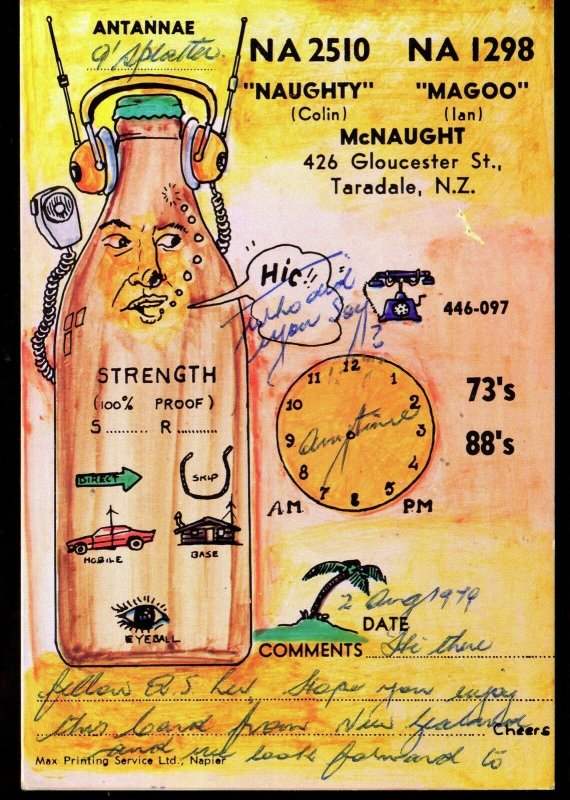 ANTANNAE
NA 2510 NA 1298
"NAUGHTY" "MAGOO"
(Colin) (Ian)
McNAUGHT
426 Gloucester St.,
Taradale, N.Z.
Hic
who did
you say
??
446-097
12
11 1
10 2
9 3
8 4
7 6 5
anytime
A.M. P.M
73's
88's
STRENGTH
(100% PROOF)
S......... R..........
DIRECT SKIP
MOBILE BASE
EYEBALL
2 Aug 1979
DATE
COMMENTS Hi there
fellow Hope you enjoy
this Card from New Zealand Cheers
and we look forward to
Max Printing Service Ltd., Napier